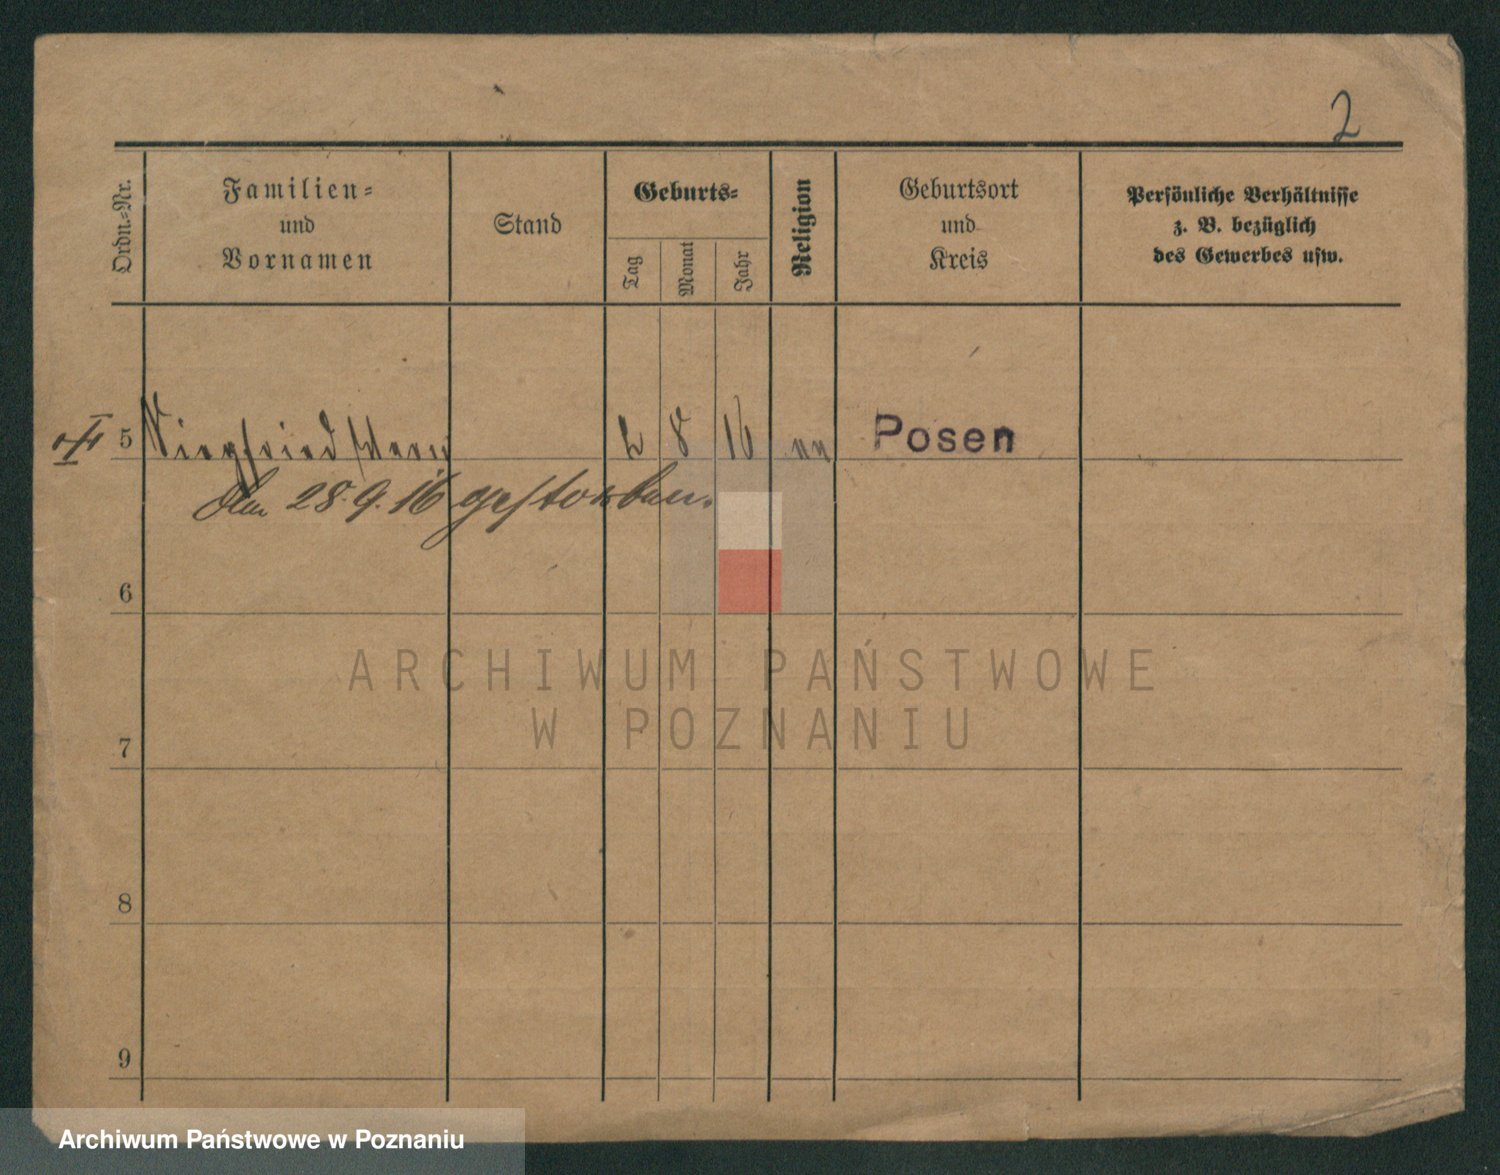 2
Ordn.=Nr.
Familien=
und
Vornamen
Stand
Geburts=
Tag
Monat
Jahr
Religion
Geburtsort
und
Kreis
Persönliche Verhältnisse
z. B. bezüglich
des Gewerbes usw.
5 Siegfried 2 8 16 Posen
28.9.16 gestorben.
6
7
8
9
ARCHIWUM PAŃSTWOWE
W POZNANIU
Archiwum Państwowe w Poznaniu